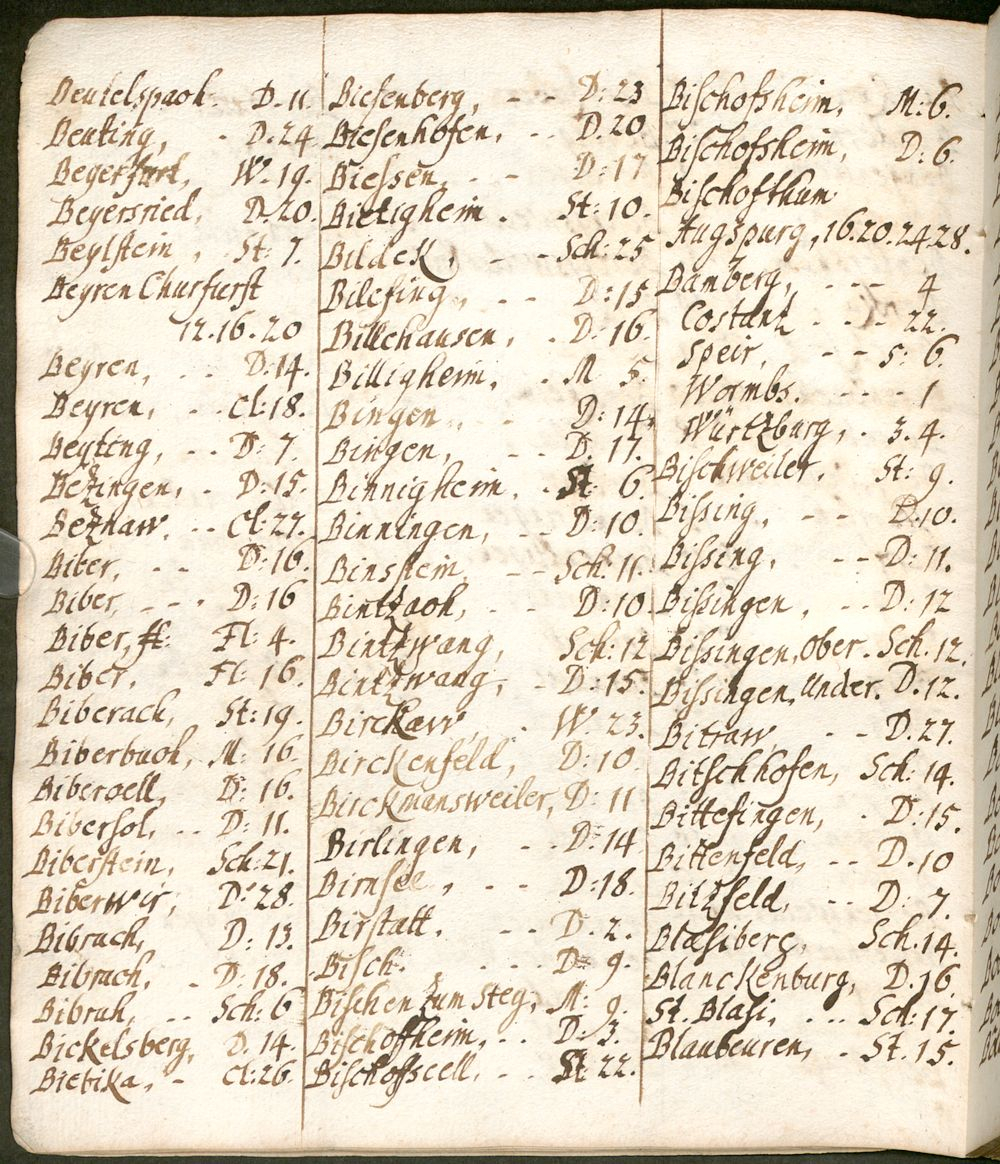 Beutelspach. D. 11.
Beuting, . D. 24
Beyerfurt, W. 19.
Beyersried, D. 20.
Beylstein, St: 7.
Beyren Churfurst
12. 16. 20
Beyren, .. D: 14.
Beyren, .. Cl: 18.
Beyting, -- D: 7.
Bezingen, . D: 15.
Beznaw, .. Cl: 27.
Biber, -- D: 10.
Biber, --. D: 16
Biber, fl: Fl: 4.
Biber, Fl: 16.
Biberach, St: 19.
Biberbach, M: 16.
Biberoell, D: 16.
Bibersol, .. D: 11.
Biberstein, Sch: 21.
Biberwir, D: 28.
Bibrach, D: 13.
Bibrach, . D: 18.
Bibruh, .. Sch: 6
Bickelsberg, D. 14.
Bietika, - Cl: 26.
Biesenberg, -- D: 23
Biesenhofen, .. D. 20
Biessen, -- D: 17
Bietigheim. St: 10.
Bildek, -- Sch: 25
Bilefing, -- D: 15
Billehausen, . D: 16.
Billigheim, . M 5.
Bingen .. D: 14
Bingen, D. 17.
Binnigheim, . St: 6.
Binningen, D: 10.
Binstein -- Sch: 11.
Bintzach, -- D: 10
Bintzwang, Sch: 12
Bintzwang, - D: 15.
Birckaw, . W. 23.
Birckenfeld, D: 10.
Birckmansweiler, D: 11
Birlingen, .. D: 14
Birnsee, -- D: 18.
Birstatt. -- D. 2.
Bisch. .... D: 9.
Bischen zum Steg, M: 9.
Bischofheim, .. D: 3.
Bischofscell, .. St 22.
Bischofsheim, M: 6.
Bischofsheim, D: 6.
Bischofthum
Augspurg, 16. 20. 24. 28.
Bamberg, --- 4
Costantz --- 22.
Speir, -- 5: 6.
Wormbs. ---- 1
Würtzburg, . 3. 4.
Bischweiler. St: 9.
Bissing, -- D. 10.
Bissing, -- D: 11.
Bissingen, -- D: 12
Bissingen, Ober. Sch. 12.
Bissingen, Under. D. 12.
Bitraw, -- D. 27.
Bitschhofen, Sch: 14.
Bittefingen, . D: 15.
Bittenfeld, -- D. 10
Bitzfeld, -- D: 7.
Blasiberg, Sch. 14.
Blanckenburg, D. 16.
St. Blasi, ... Sch: 17.
Blaubeuren, . St. 15.